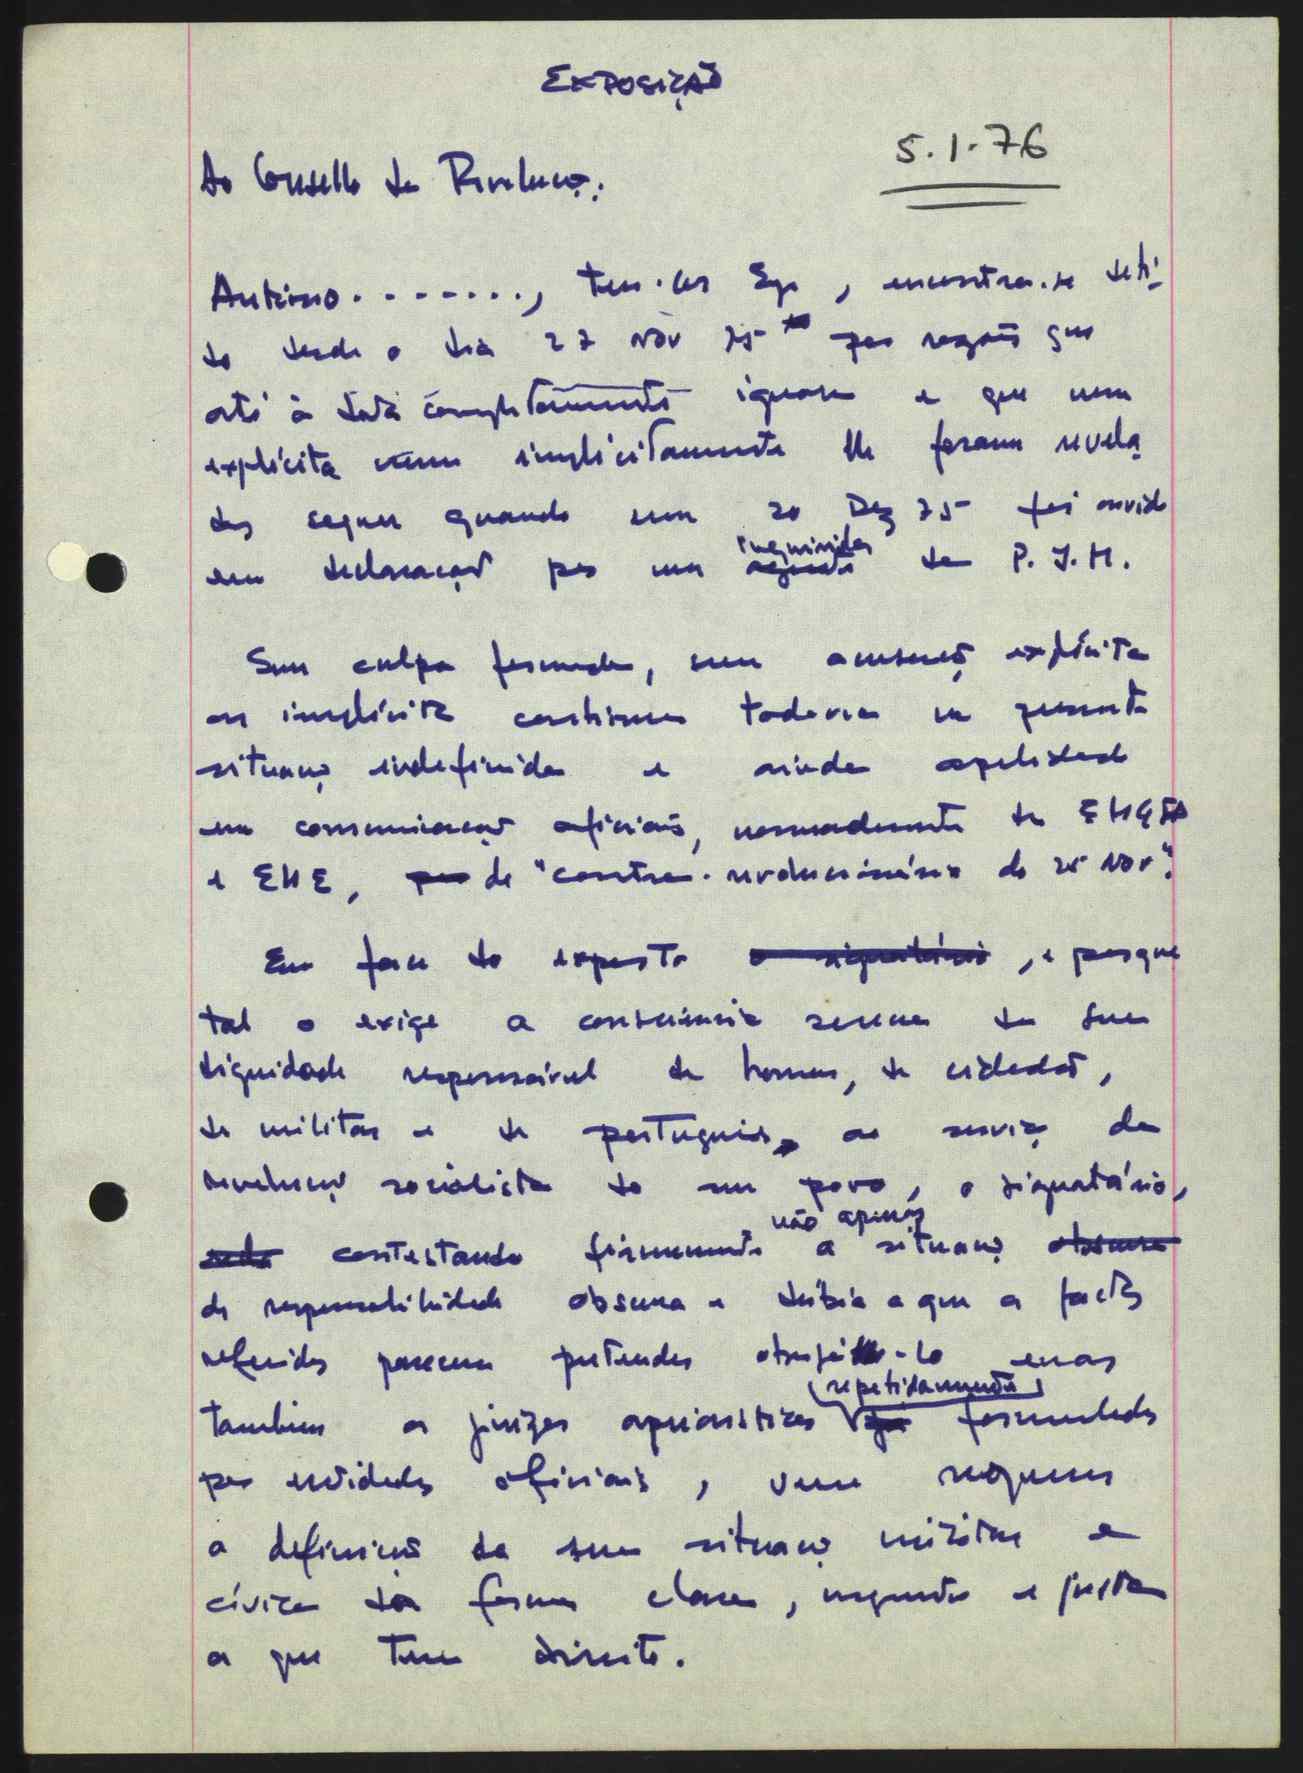 EXPOSIÇÃO
5.1.76
Ao Conselho da Revolução:
António........, Ten. Cor Eng, encontra-se deti-
do desde o dia 27 Nov 75 por razões que
até à data completamente ignora e que nem
explícita nem implicitamente lhe foram revela
das sequer quando em 20 Dez 75 foi ouvido
inquiridor
em declaração por um da P.J.M.
Sem culpa formada, sem acusação explícita
ou implícita continua todavia na presente
situação indefinida e ainda apelidado
em comunicações oficiais, nomeadamente do EMGFA
e EME, de "contra-revolucionário do 25 Nov".
Em face do exposto o signatário, e porque
tal o exige a consciência serena da sua
dignidade responsável de homem, de cidadão,
de militar e de português, ao serviço da
revolução socialista do seu povo, o signatário,
não apenas
contestando firmemente a situação obscura
de responsabilidade obscura e dúbia a que os factos
referidos parecem pretender -lo mas
repetidamente
também os juízos apriorísticos formulados
por entidades oficiais, vem requerer
a definição da sua situação militar e
cívica da forma clara, e justa
a que tem direito.